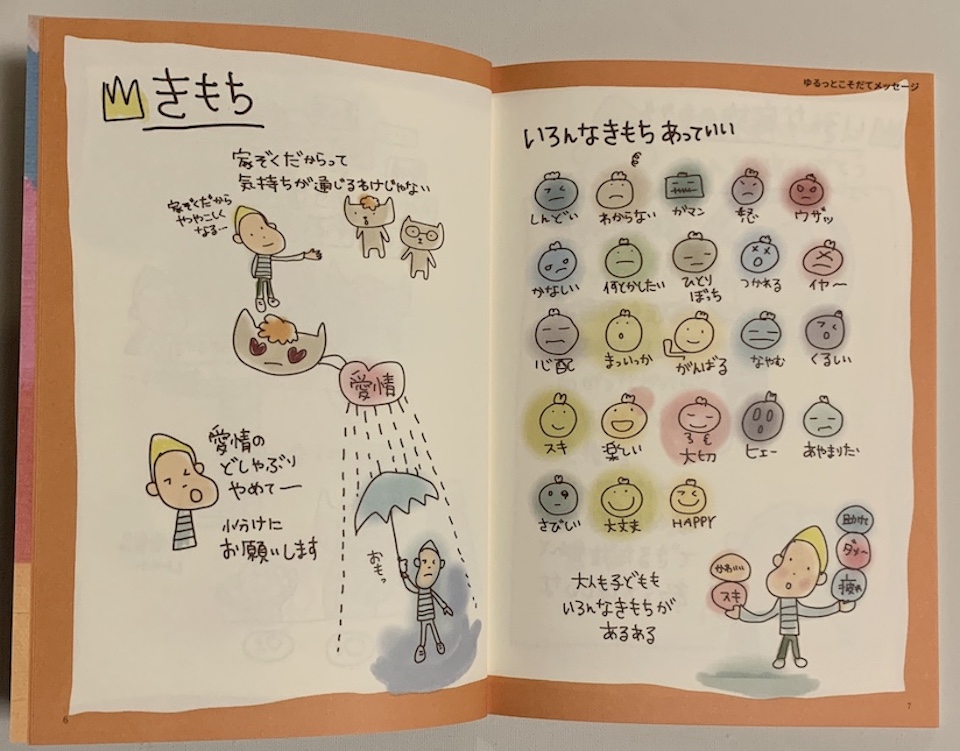 きもち
家ぞくだからって
気持ちが通じるわけじゃない
家ぞくだから
ややこしく
なるー
愛情
愛情の
どしゃぶり
やめてー
小分けに
お願いします
おもっ
6
ゆるっとこそだてメッセージ
いろんなきもち あっていい
しんどい
わからない
ガマン
怒
ウザッ
かなしい
何とかしたい
ひとり
ぼっち
つかれる
イヤ〜
心配
まっいっか
がんばる
なやむ
くるしい
スキ
楽しい
大切
ヒェー
あやまりたい
さびしい
大丈夫
HAPPY
大人も子どもも
いろんなきもちが
あるある
かわいい
スキ
助けて
ダメ〜
疲れ
7